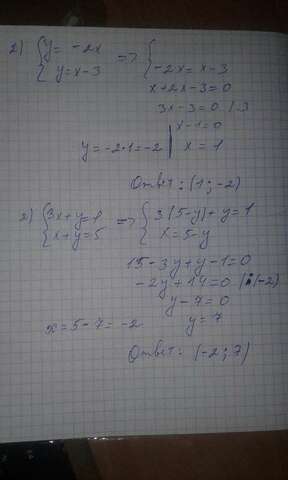 2) { y = -2x => {
{ y = x-3 -2x = x-3
x+2x-3=0
3x-3=0 /:3
x-1=0
y=-2·1=-2 | x=1
Ответ: (1; -2)
2) { 3x+y=1 => { 3(5-y)+y=1
{ x+y=5 { x=5-y
15-3y+y-1=0
-2y+14=0 |:(-2)
y-7=0
x=5-7=-2 y=7
Ответ: (-2; 7)